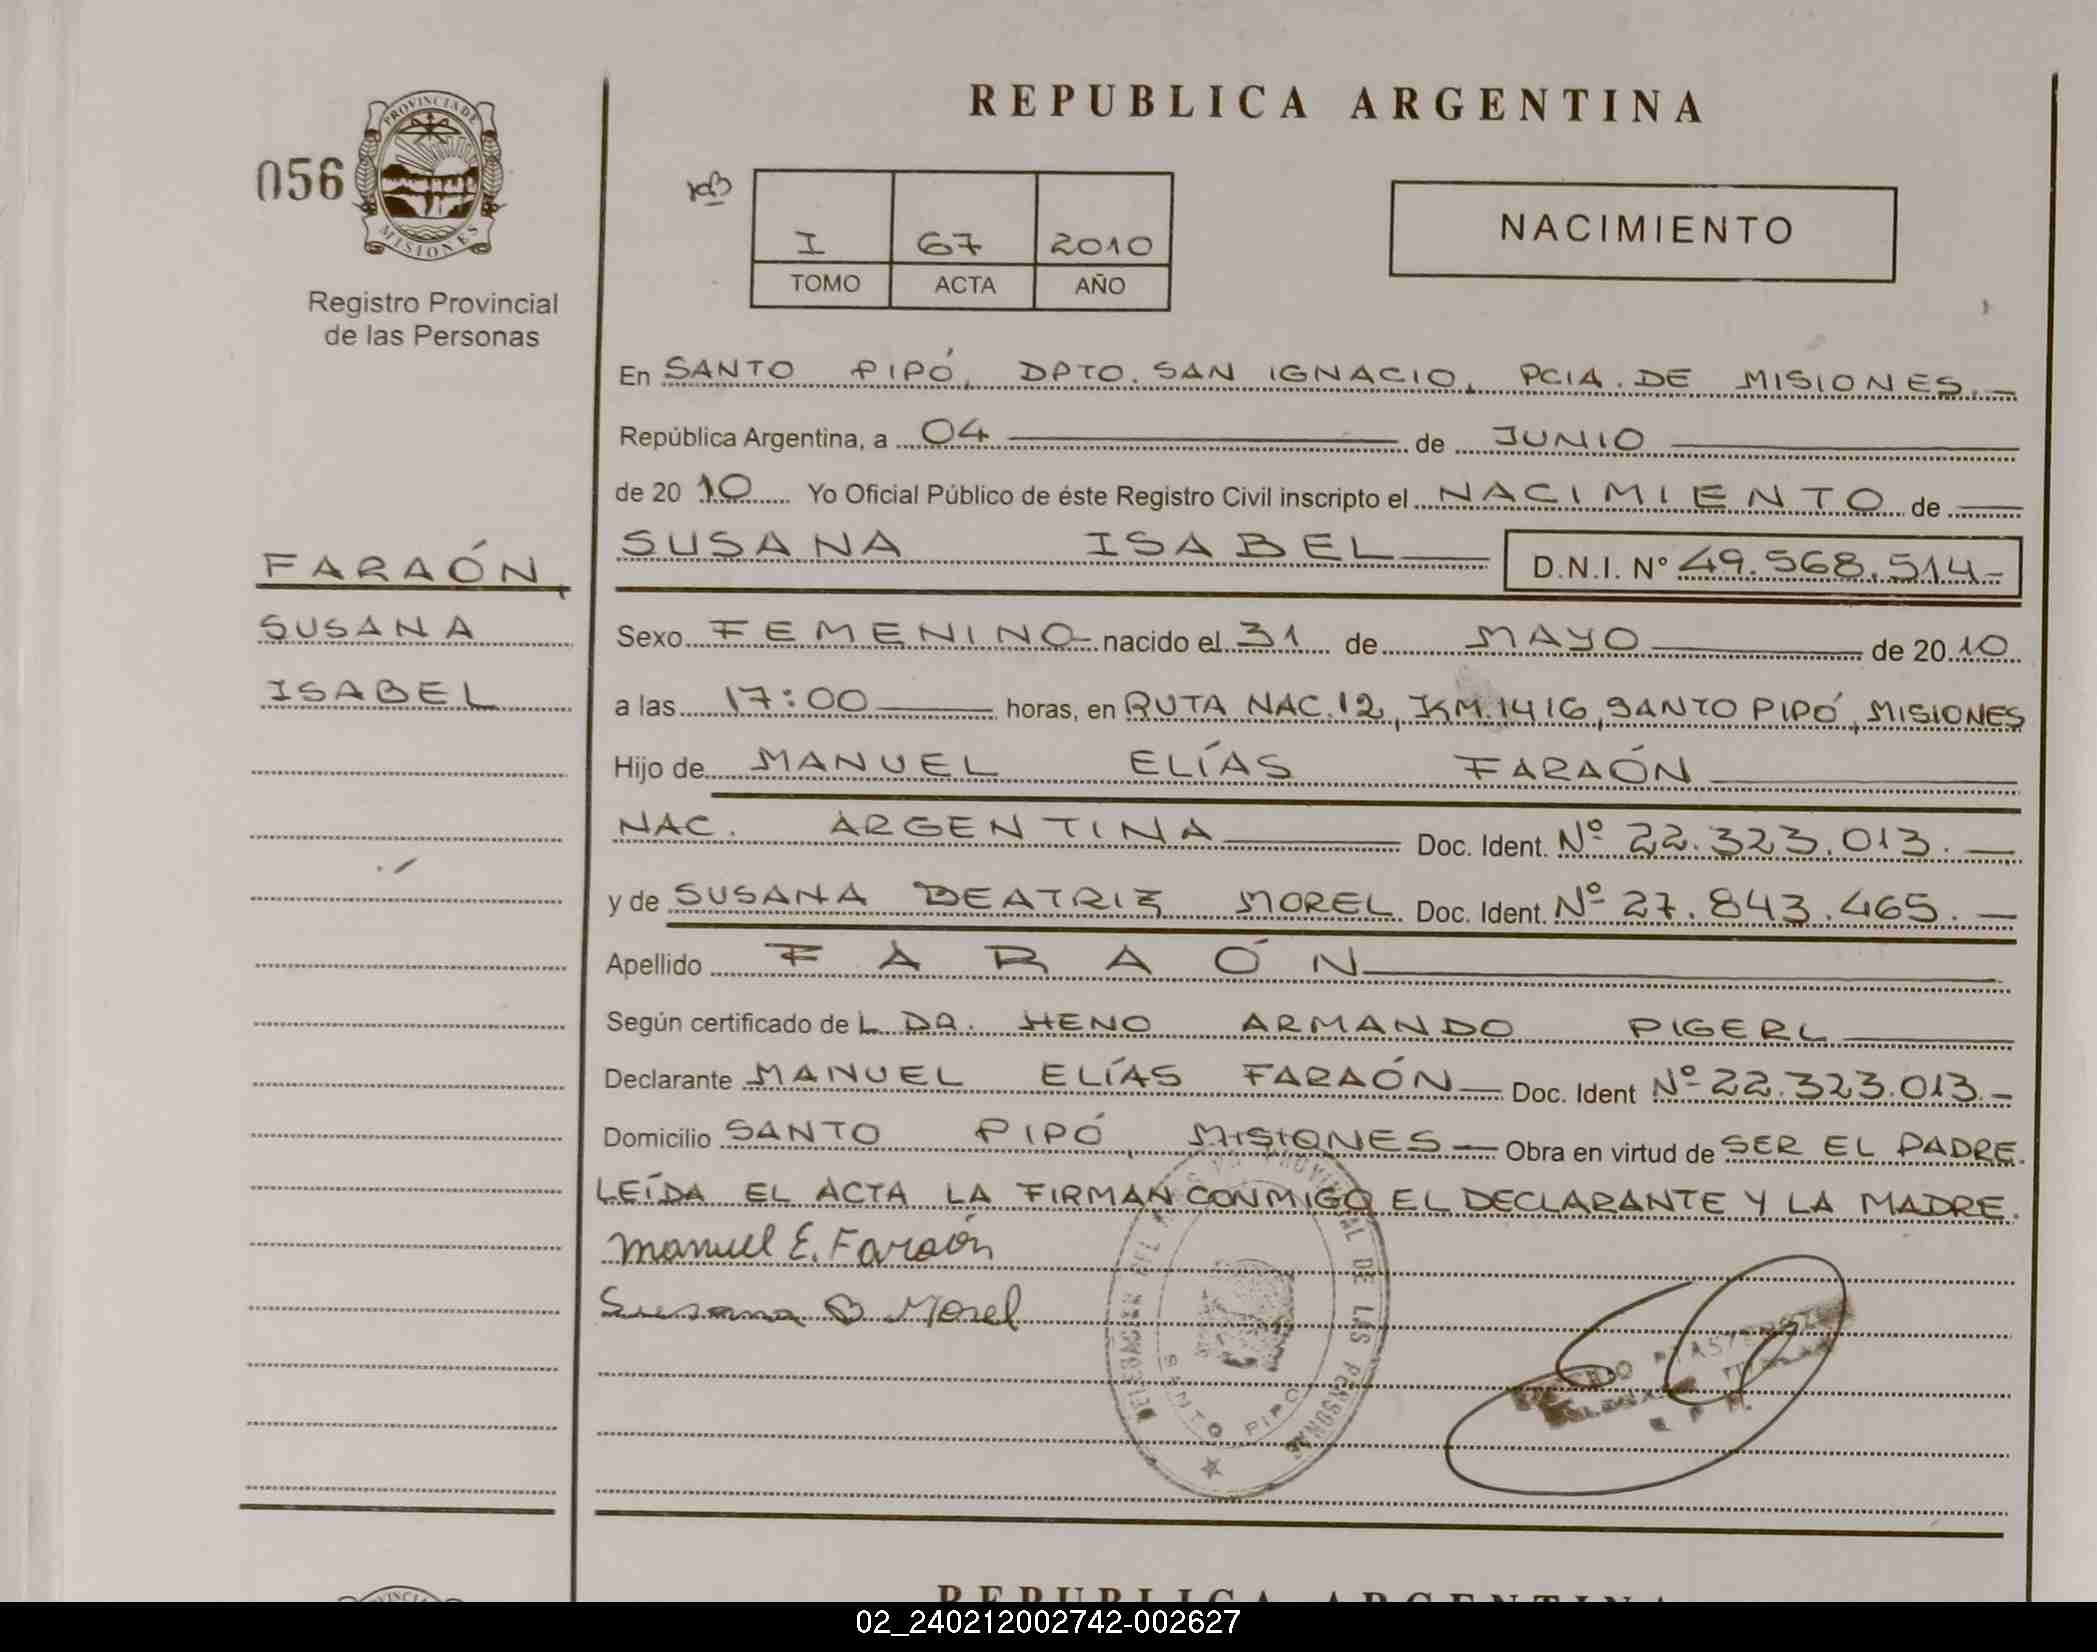 REPUBLICA ARGENTINA
056
PROVINCIA DE
MISIONES
Registro Provincial
de las Personas
I 67 2010
TOMO ACTA AÑO
NACIMIENTO
En SANTO PIPÓ, DPTO. SAN IGNACIO, PCIA. DE MISIONES.—
República Argentina, a 04 de JUNIO
de 2010 Yo Oficial Público de éste Registro Civil inscripto el NACIMIENTO de
SUSANA ISABEL D.N.I. N° 49.568.514-
FARAÓN,
SUSANA
ISABEL
Sexo FEMENINO nacido el 31 de MAYO de 2010
a las 17:00 horas, en RUTA NAC.12, KM.1416, SANTO PIPÓ, MISIONES
Hijo de MANUEL ELÍAS FARAÓN
NAC. ARGENTINA Doc. Ident. Nº 22.323.013.—
y de SUSANA BEATRIZ MOREL Doc. Ident. Nº 27.843.465.—
Apellido FARAÓN
Según certificado de L DR. HENO ARMANDO PIGERL
Declarante MANUEL ELÍAS FARAÓN Doc. Ident Nº 22.323.013.-
Domicilio SANTO PIPÓ MISIONES — Obra en virtud de SER EL PADRE.
LEÍDA EL ACTA LA FIRMAN CONMIGO EL DECLARANTE Y LA MADRE.
Manuel E. Faraón
Susana B Morel
DE LAS PERSONAS
SANTO PIPO
REPUBLICA ARGENTINA
02_240212002742-002627